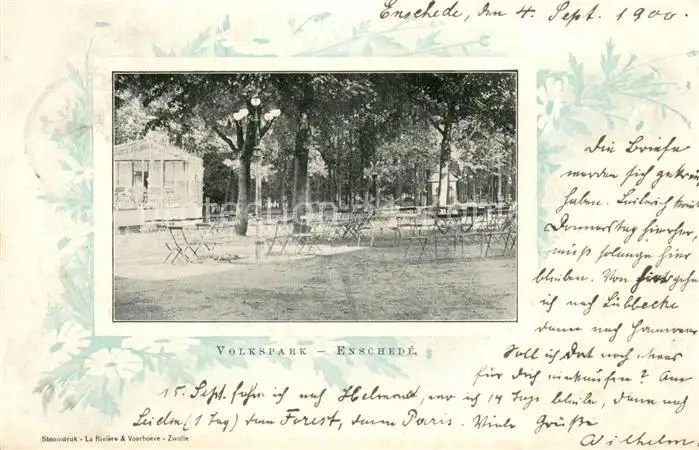 Enschede, den 4. Sept. 1900.
Die Briefe
werden sich gekreuzt
haben.
Donnerstag hierher,
muß solange hier
bleiben. Von hier gehe
ich nach Lübbecke
dann nach Hannover
Soll ich dort noch etwas
für dich einkaufen? Am
15. Sept. fahre ich nach Helmond, wo ich 14 Tage bleibe, dann nach
Leiden (1 Tag) dann Forest, dann Paris. Viele Grüße
Wilhelm.
VOLKSPARK – ENSCHEDÉ.
Stoomdruk - La Rivière & Voorhoeve - Zwolle